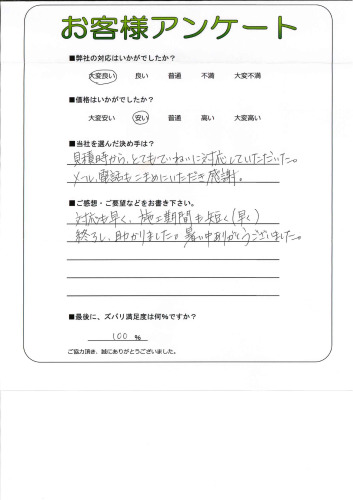 お客様アンケート
■弊社の対応はいかがでしたか？
大変良い 良い 普通 不満 大変不満
■価格はいかがでしたか？
大変安い 安い 普通 高い 大変高い
■当社を選んだ決め手は？
見積時から、とてもていねいに対応していただいた。
メール、電話もこまめにいただき感謝。
■ご感想・ご要望などをお書き下さい。
対応も早く、施工期間も短く（早く）
終了し、助かりました。暑い中ありがとうございました。
■最後に、ズバリ満足度は何％ですか？
100 %
ご協力頂き、誠にありがとうございました。